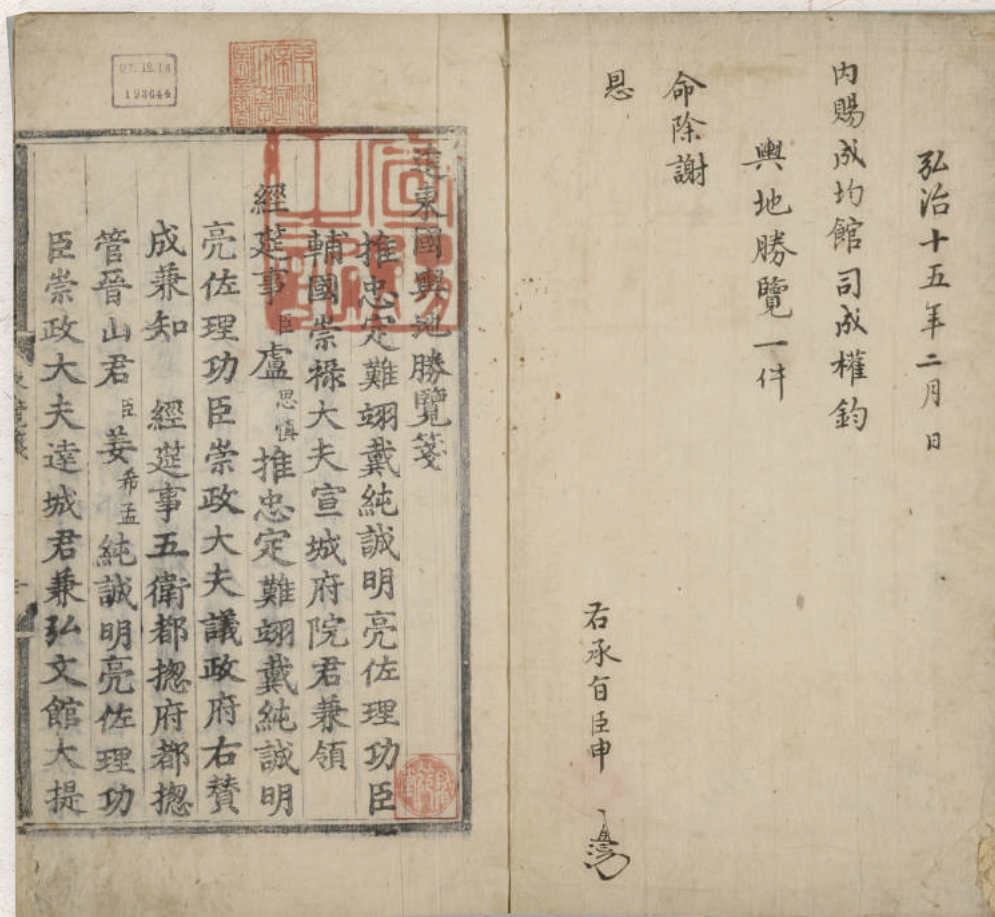 弘治十五年二月 日
內賜成均館司成權鈞
輿地勝覽一件
命除謝
恩
右承旨臣申
進東國輿地勝覽箋
推忠定難翊戴純誠明亮佐理功臣
輔國崇祿大夫宣城府院君兼領
經筵事臣盧思愼推忠定難翊戴純誠明
亮佐理功臣崇政大夫議政府右贊
成兼知 經筵事五衛都摠府都摠
管晉山君臣姜希孟純誠明亮佐理功
臣崇政大夫達城君兼弘文館大提
07.12.14
193646